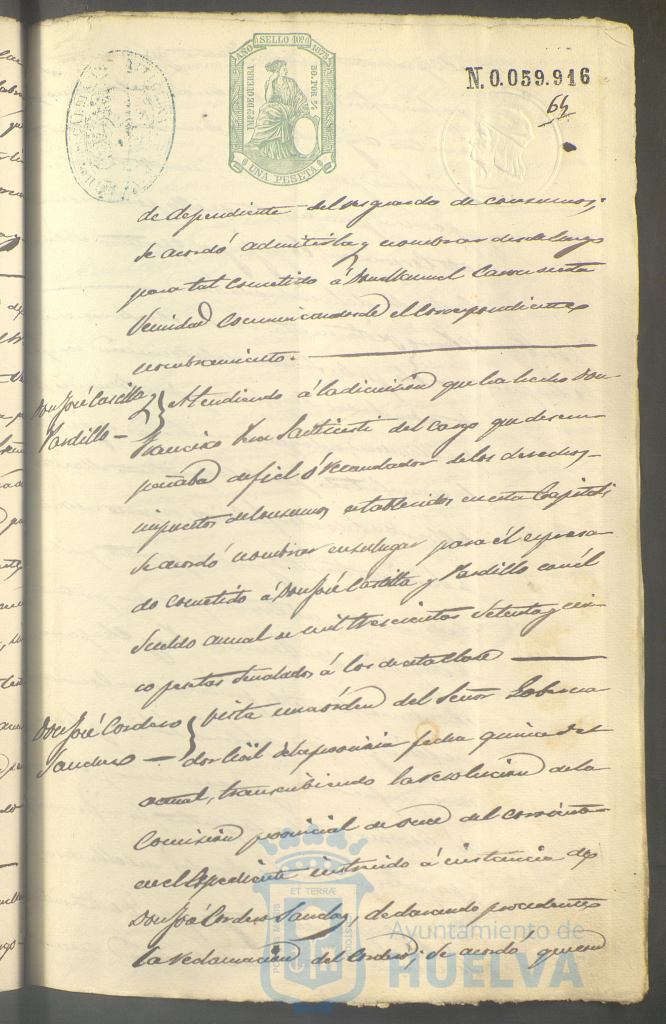 AÑO SELLO 10º 1875
IMPTO DE GUERRA
50 POR %
UNA PESETA
N. 0.059.916
64
de dependiente del resguardo de consumos;
se acordó admitirla y nombrar desde luego
para tal cometido á Don Manuel de esta
Vecindad comunicandose el correspondiente
nombramiento.
Don José Castilla
Pardillo
Atendiendo á la dimision que ha hecho Don
Francisco del cargo que desem-
peñaba de fiel ó recaudador de los derechos
impuestos de consumos establecidos en esta Capital
se acordó nombrar en su lugar para él expresa-
do cometido á Don José Castilla y Pardillo con él
sueldo anual de mil trescientas setenta y cin-
co pesetas señalados á los de esta clase
Don José Cordero
Sanchez
Vista una órden del Señor Goberna-
dor Civil de la provincia fecha quince del
actual, transcribiendo la resolucion de la
Comision provincial de once del corriente
en el Espediente instruido á instancia de
Don José Cordero Sanchez, declarando procedente
la reclamacion del Cordero; se acordó
ET TERRÆ
Ayuntamiento de
HUELVA